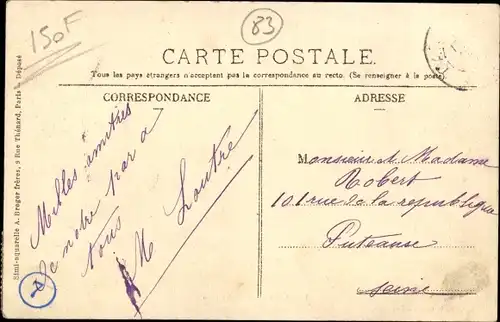 150F
83
CARTE POSTALE.
Tous les pays étrangers n'acceptent pas la correspondance au recto. (Se renseigner à la poste).
CORRESPONDANCE
ADRESSE
Milles amitiés
de notre par a
tous
M
Monsieur & Madame
Robert
101 rue de la republique
Puteause
Seine
Simi-aquarelle A. Breger frères, 9 Rue Thénard, Paris. Déposé